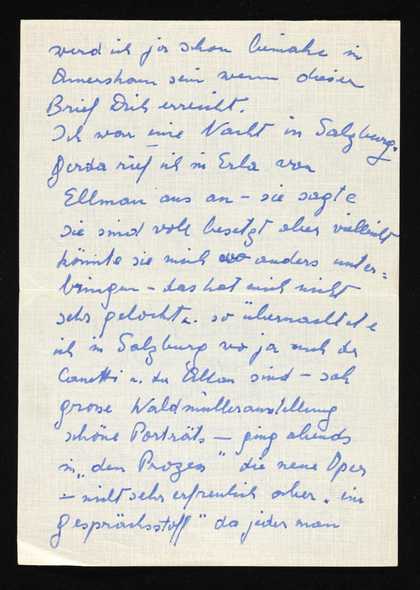 werd ich ja schon beinahe in
Amersham sein wenn dieser
Brief Dich erreicht.
Ich war eine Nacht in Salzburg.
Gerda rief ich in Erla von
Ellman aus an – sie sagte
sie sind voll besetzt aber vielleicht
könnte sie mich wo anders unter=
bringen – das hat mich nicht
sehr gelockt u. so übernachtete
ich in Salzburg wo ja auch der
Canetti u. die Allan sind – sah
grosse Waldmüllerausstellung
schöne Porträts – ging abends
in „den Prozess" die neue Oper
– nicht sehr erfreulich aber „ein
Gesprächsstoff" da jederman